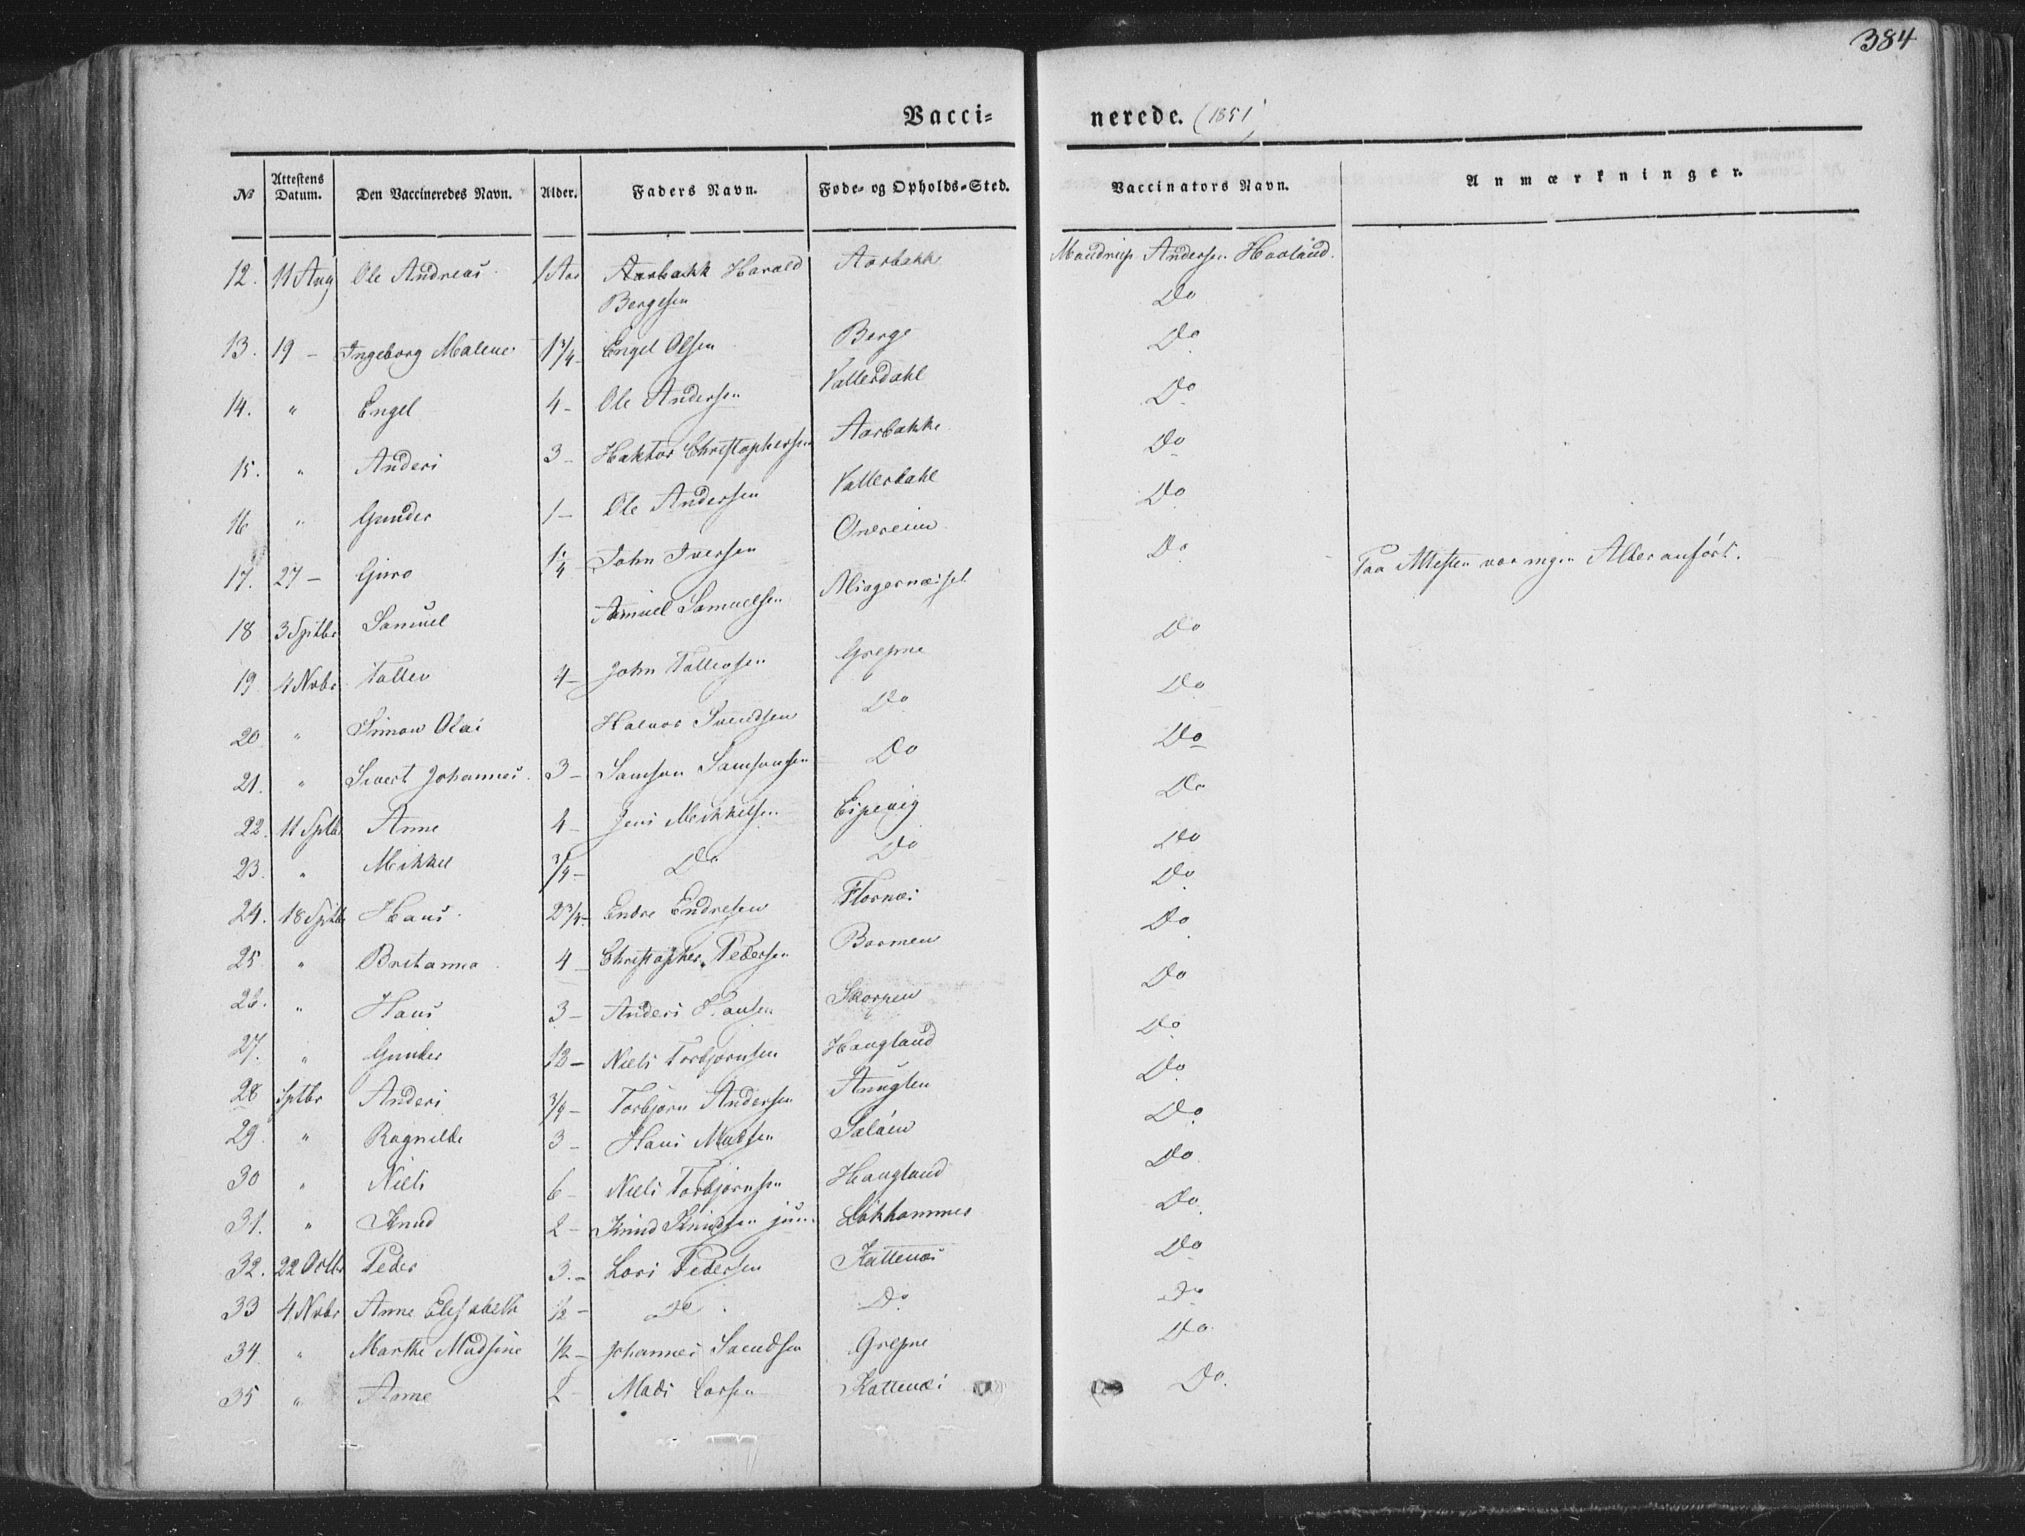 384
Vacci= nerede. (1851)
No Attestens Datum. Den Vaccineredes Navn. Alder. Faders Navn. Føde- og Opholds-Sted. Vaccinators Navn. Anmærkninger.
12. 11 Aug Ole Andreas 1 Aar Aarbakk Harald Bergesen Aarbakk Mandrup Andersen Haaland.
Do
13. 19 – Ingeborg Malene 1 3/4 – Engel Olsen Berge Do
14. " Engel 4 – Ole Andersen Vatterdahl Do
15. " Anders 3 – Haktor Christophersen Aarbakke Do
16 " Gunder 1 – Ole Andersen Vatterdahl Do
17. 27 – Guro 1/4 John Iversen Onereim Do
18 3 Sptbr Samuel Samuel Samuelsen Do Paa Attesten var ingen Alder anført.
19. 4 Nvbr Tollev 4 – John Tollevsen Grepne Do
20 " Simon Olai Halvor Svendsen Do Do
21. " Sivert Johannes 3 – Samson Samsonsen Do Do
22. 11 Sptbr Anne 4 – Jens Mikkelsen Espevig Do
23. " Mikkel 3/4 – Do Do Do
24. 18 Sptbr Hans 2 3/4 – Endre Endresen Flornæs Do
25 " Britanna 4 – Christopher Pedersen Boomen Do
26. " Hans 3 – Anders Hansen Skorpen Do
27. " Gunder 12 – Niels Torbjørnsen Haugland Do
28 Sptbr Anders 3/4 – Torbjørn Andersen Do
29. " Ragnilde 3 – Hans Madsen Do
30 " Niels 6 – Niels Torbjørnsen Haugland Do
31. " Knud 2 – Knud Knudsen jun. Løkhammer Do
32. 22 Octbr Peder 3. – Lars Pedersen Kattenæs Do
33 4 Nvbr Anne Elisabeth 1/2 – Do Do Do
34 " Marthe Madsine 1/2 – Johannes Svendsen Grepne Do
35 " Anne 2 – Mads Larsen Kattenæs Do.